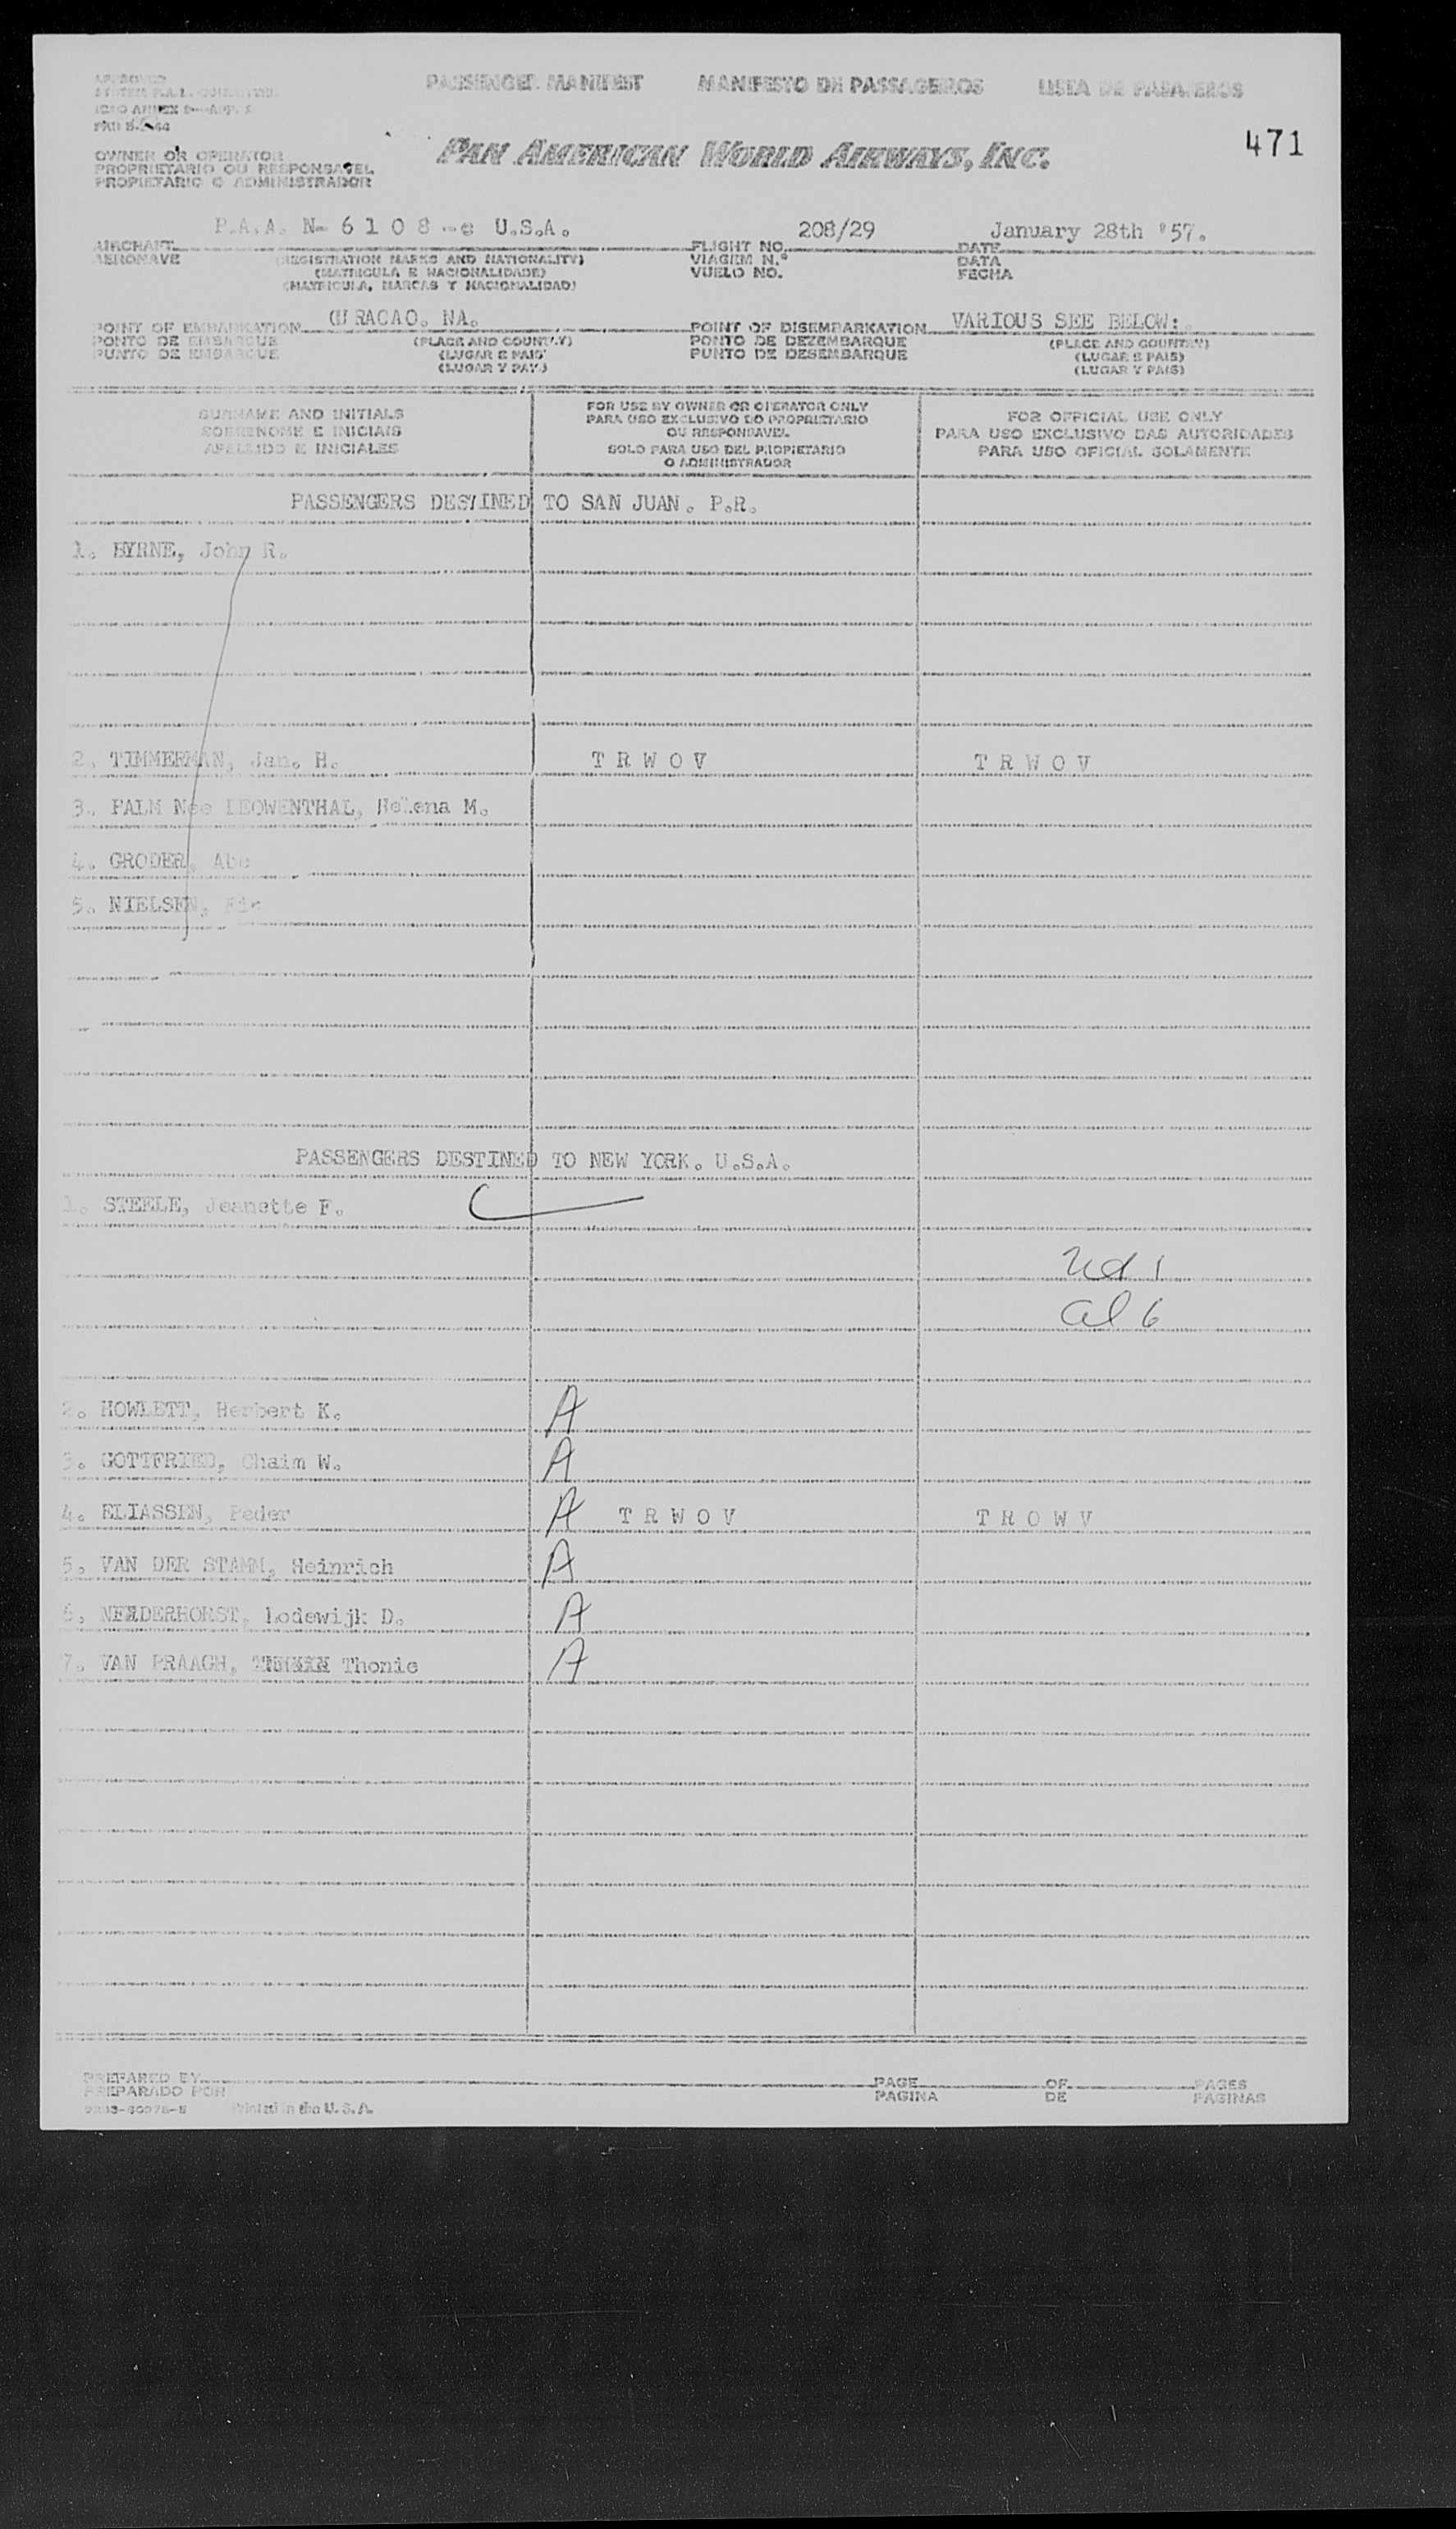 PASSENGER MANIFEST MANIFESTO DE PASSAGEIROS LISTA DE PASAJEROS
APPROVED
ICAO ANNEX 9—APP. 
471
PAN AMERICAN WORLD AIRWAYS, INC.
OWNER OR OPERATOR
PROPRIETARIO OU RESPONSAVEL
PROPIETARIO O ADMINISTRADOR
P.A.A. N- 6 1 0 8 -c U.S.A. 208/29 January 28th '57.
AIRCRAFT FLIGHT NO. DATE
AERONAVE (REGISTRATION MARKS AND NATIONALITY) VIAGEM N.º DATA
(MATRICULA E NACIONALIDADE) VUELO NO. FECHA
(MATRICULA, MARCAS Y NACIONALIDAD)
POINT OF EMBARKATION CURACAO. NA. POINT OF DISEMBARKATION VARIOUS SEE BELOW:
PONTO DE EMBARQUE (PLACE AND COUNTRY) PONTO DE DEZEMBARQUE (PLACE AND COUNTRY)
PUNTO DE EMBARQUE (LUGAR E PAIS) PUNTO DE DESEMBARQUE (LUGAR E PAIS)
(LUGAR Y PAIS) (LUGAR Y PAIS)
SURNAME AND INITIALS
SOBRENOME E INICIAIS
APELLIDO E INICIALES
FOR USE BY OWNER OR OPERATOR ONLY
PARA USO EXCLUSIVO DO PROPRIETARIO
OU RESPONSAVEL
SOLO PARA USO DEL PROPIETARIO
O ADMINISTRADOR
FOR OFFICIAL USE ONLY
PARA USO EXCLUSIVO DAS AUTORIDADES
PARA USO OFICIAL SOLAMENTE
PASSENGERS DESTINED TO SAN JUAN. P.R.
1. BYRNE, John R.
2. TIMMERMAN, Jan. H. T R W O V T R W O V
3. PALM Nee LEOWENTHAL, Helena M.
4. GRODER, Abe
5. NIELSEN,
PASSENGERS DESTINED TO NEW YORK. U.S.A.
1. STEELE, Jeanette F.
al 6
2. HOWLETT, Herbert K. A
3. GOTTFRIED, Chaim W. A
4. ELIASSEN, Peder A T R W O V T R O W V
5. VAN DER STAMM, Heinrich A
6. NEEDERHORST, Lodewijk D. A
7. VAN PRAAGH, Thonie A
PREPARED BY PAGE OF PAGES
PREPARADO POR PAGINA DE PAGINAS
Printed in the U. S. A.